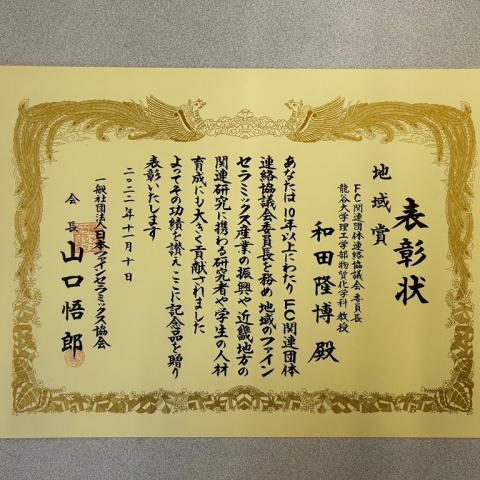 表彰状
地域賞
FC関連団体連絡協議会 委員長
龍谷大学理工学部物質化学科 教授
和田隆博 殿
あなたは10年以上にわたりFC関連団体
連絡協議会委員長を務め地域のファイン
セラミックス産業の振興や近畿地方の
関連研究に携わる研究者や学生の人材
育成にも大きく貢献されました
よってその功績を讃えここに記念品を贈り
表彰いたします
二〇二二年十一月十日
一般社団法人日本ファインセラミックス協会
会長 山口悟郎